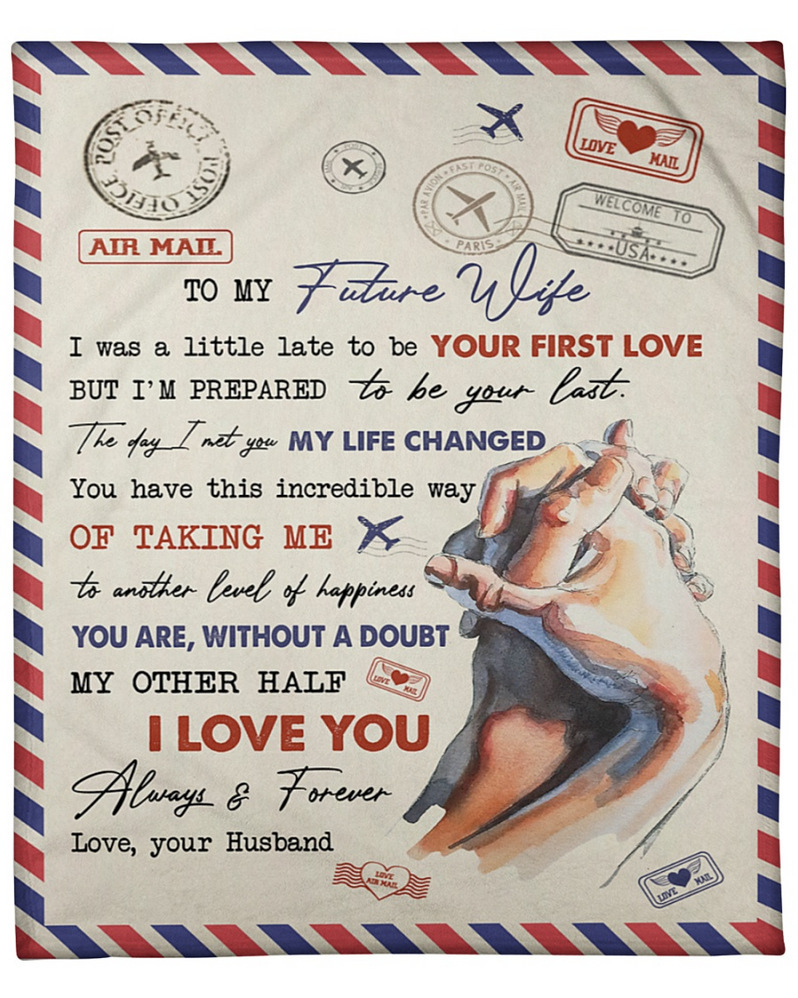 POST OFFICE POST OFFICE
AIR MAIL
PAR AVION • FAST POST • AIR MAIL
PARIS
LOVE MAIL
WELCOME TO
USA
TO MY Future Wife
I was a little late to be YOUR FIRST LOVE
BUT I'M PREPARED to be your last.
The day I met you MY LIFE CHANGED
You have this incredible way
OF TAKING ME
to another level of happiness
YOU ARE, WITHOUT A DOUBT
MY OTHER HALF
LOVE MAIL
I LOVE YOU
Always & Forever
Love, your Husband
LOVE
AIR MAIL
LOVE MAIL